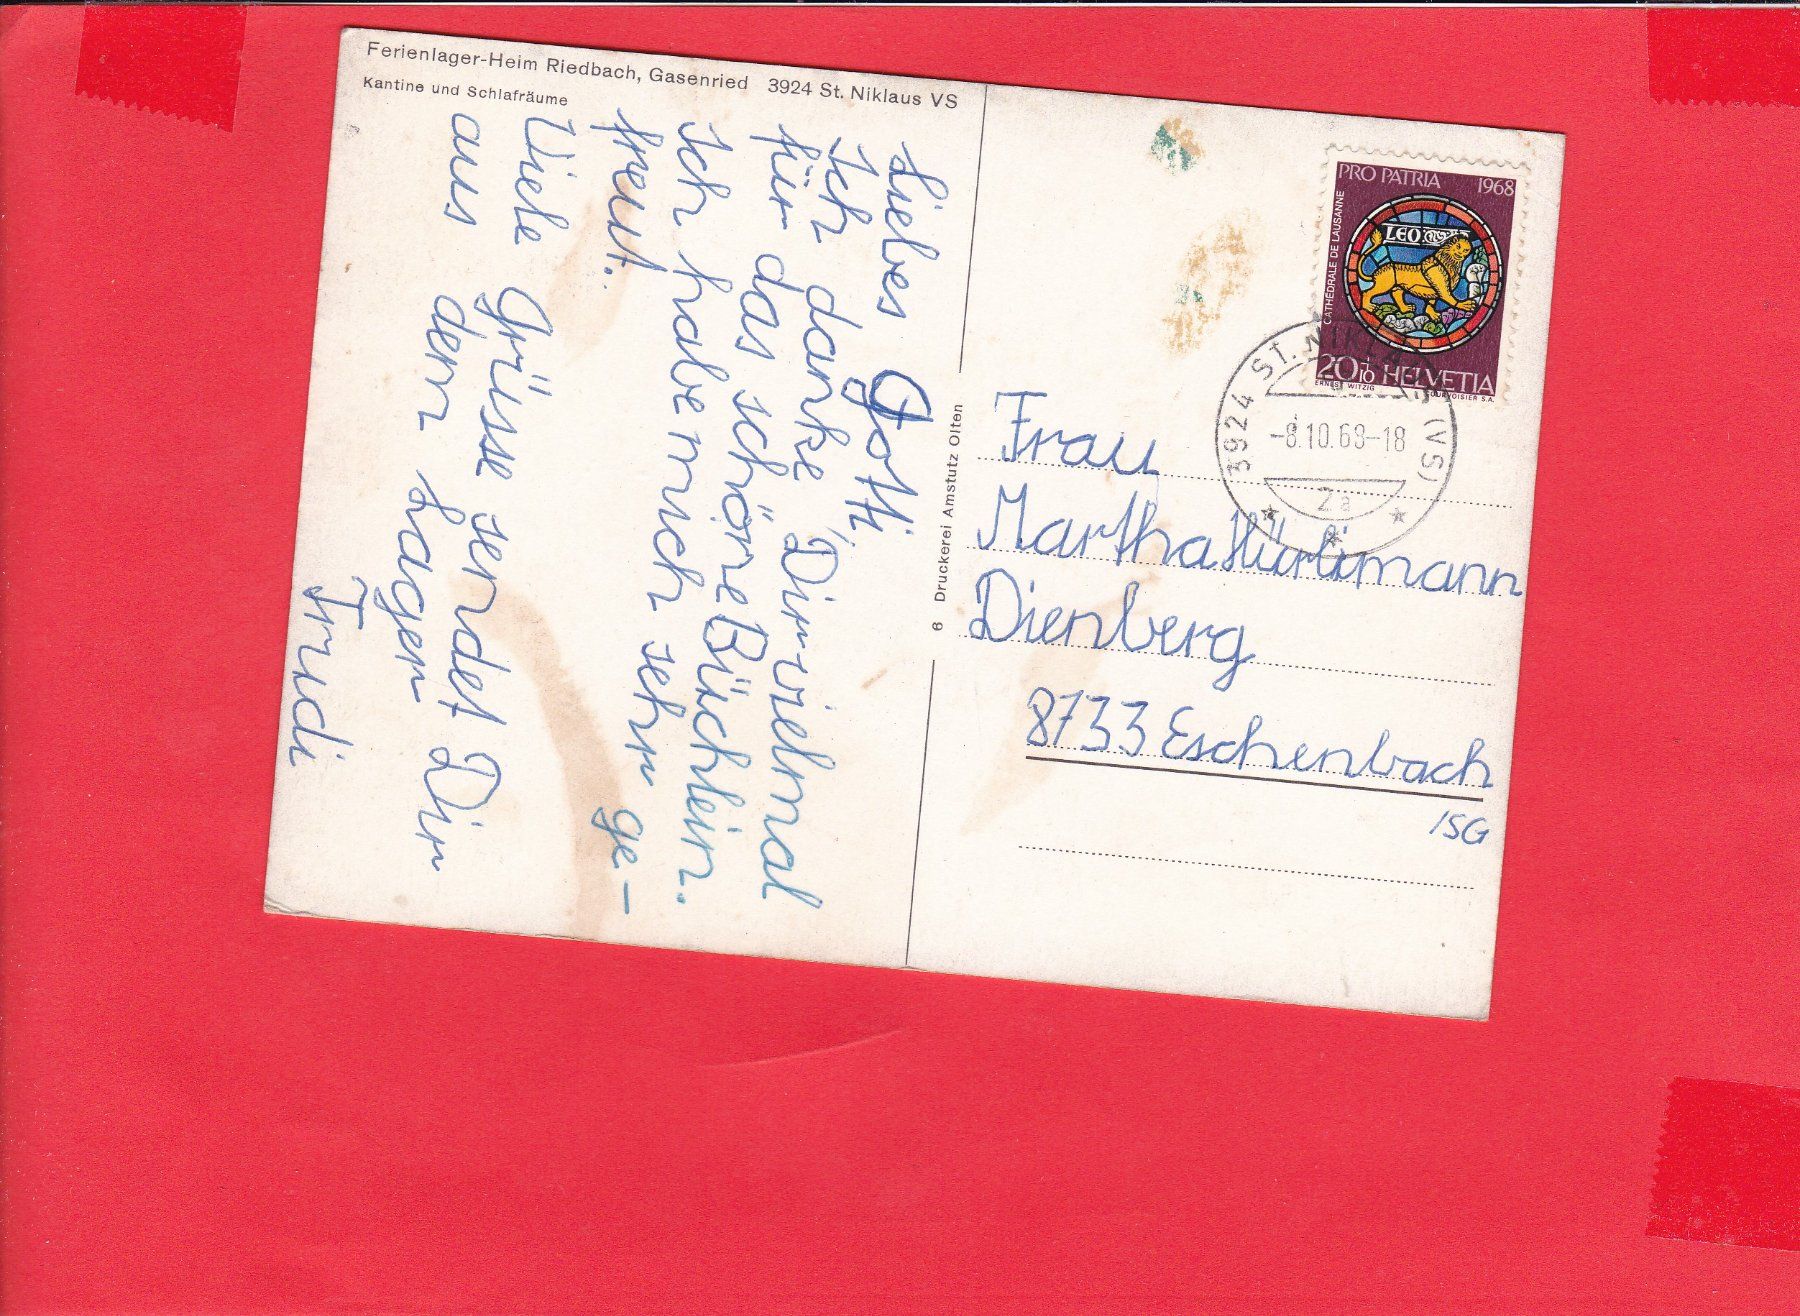 Ferienlager-Heim Riedbach, Gasenried 3924 St. Niklaus VS
Kantine und Schlafräume
Liebes Gotti,
Ich danke Dir vielmal
für das schöne Büchlein.
Ich habe mich sehr ge-
freut..
Viele Grüsse sendet Dir
aus dem Lager
Trudi
6 Druckerei Amstutz Olten
PRO PATRIA 1968
CATHÉDRALE DE LAUSANNE
LEO
20+10 HELVETIA
ERNEST WITZIG COURVOISIER S.A.
3924 ST. NIKLAUS (VS)
-8.10.68-18
2a
Frau
Martha Hürlimann
Dienberg
8733 Eschenbach
/SG